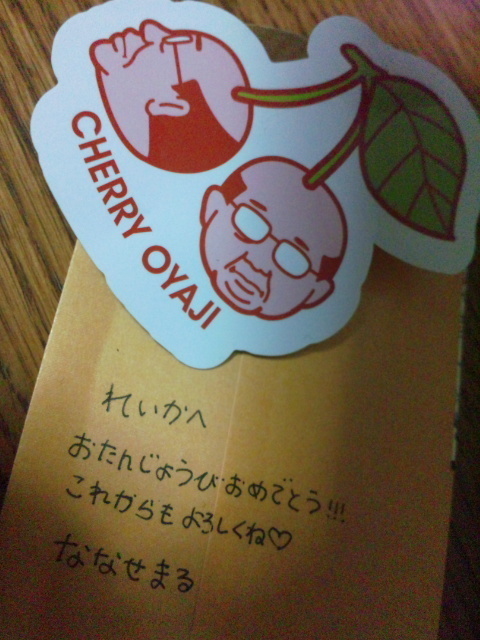 CHERRY OYAJI
れいかへ
おたんじょうびおめでとう!!!
これからもよろしくね♡
ななせまる